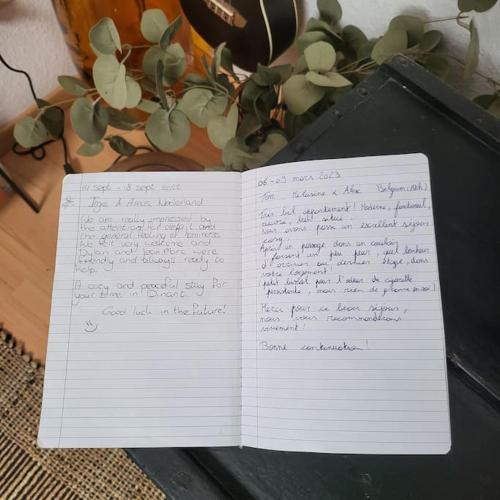 14 Sept - 18 Sept 2022
Inge & Amos Nederland
We are really impressed by
the attention for detail and
the general feeling of homines.
We felt very welcome and
Dylan and Jean Marc were
friendly and always ready to
help.
A cosy and peaceful stay for
your time in Dinant.
Good luck in the future!
06 - 09 mars 2023
Tom, Mélusine & Alex Belgium (Ath)
Très bel appartement! Moderne, fonctionnel,
décoré, bien situé...
nous avons passé un excellent séjour
cosy.
Après un passage dans un couloir
faisant un peu peur, quel bonheur
d'arriver au dernier étage, dans
votre logement!
petit bémol pour l'odeur de cigarette
persistante, mais rien de
Merci pour ce beau séjour,
nous vous recommanderons
vivement!
Bonne continuation!